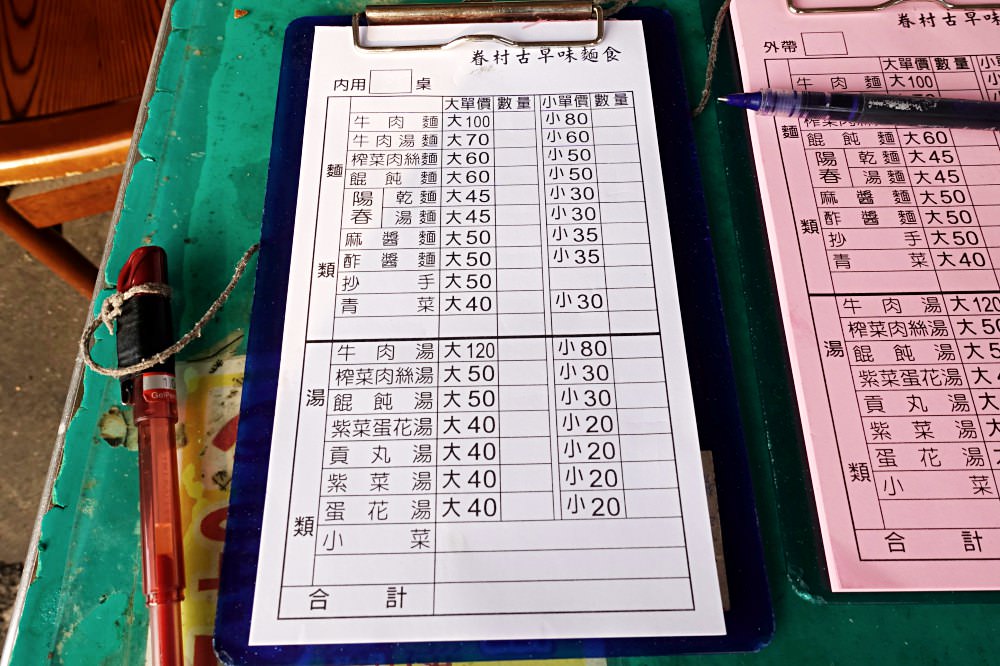 眷村古早味麵食
內用 桌
大單價 數量 小單價 數量
麵類
牛肉麵 大100 小80
牛肉湯麵 大70 小60
榨菜肉絲麵 大60 小50
餛飩麵 大60 小50
陽春 乾麵 大45 小30
湯麵 大45 小30
麻醬麵 大50 小35
酢醬麵 大50 小35
抄手 大50
青菜 大40 小30
湯類
牛肉湯 大120 小80
榨菜肉絲湯 大50 小30
餛飩湯 大50 小30
紫菜蛋花湯 大40 小20
貢丸湯 大40 小20
紫菜湯 大40 小20
蛋花湯 大40 小20
小菜
合計
GelPen
眷村古早味
外帶
大單價 數量
麵類
牛肉麵 大100
餛飩麵 大60
陽春 乾麵 大45
湯麵 大45
麻醬麵 大50
酢醬麵 大50
抄手 大50
青菜 大40
湯類
牛肉湯 大120
榨菜肉絲湯 大50
餛飩湯 大5
紫菜蛋花湯 大
貢丸湯 大
紫菜湯 大
蛋花湯 大
小菜
合計